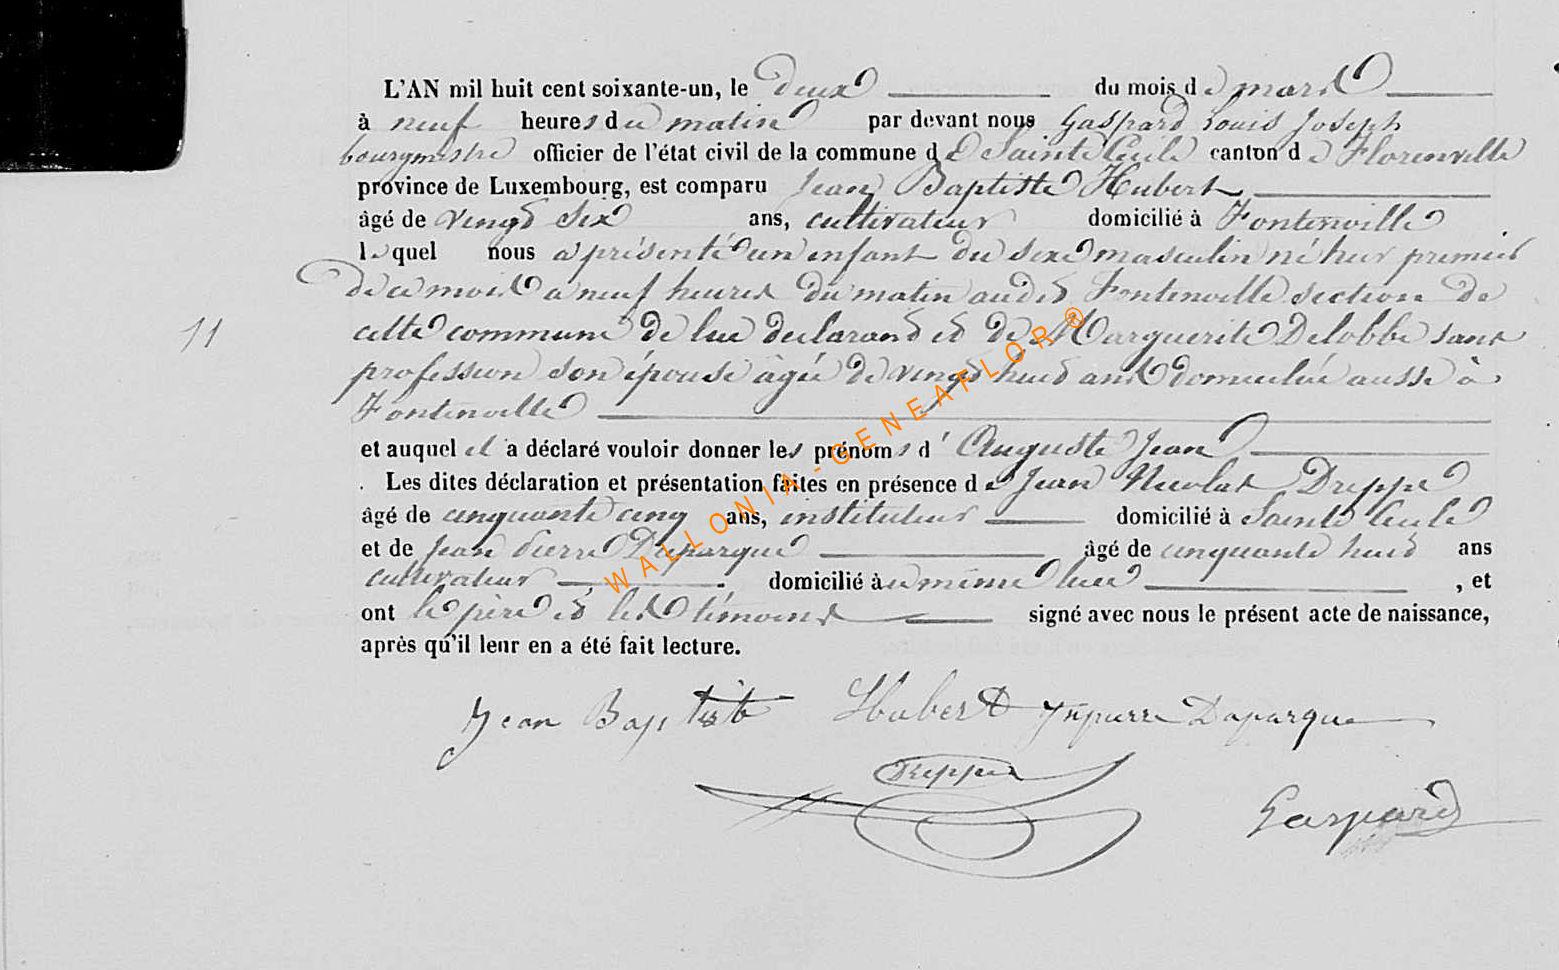 L'AN mil huit cent soixante-un, le deux du mois de mars
à neuf heures du matin par devant nous Gaspard Louis Joseph
bourgmestre officier de l'état civil de la commune de Sainte Cécile canton de Florenville
province de Luxembourg, est comparu Jean Baptiste Hubert
âgé de vingt six ans, cultivateur domicilié à Fontenoille
lequel nous a présenté un enfant du sexe masculin né hier premier
de ce mois a neuf heures du matin audit Fontenoille section de
11 cette commune de lui declarant et de Marguerite Delobbe sans
profession son épouse âgée de vingt huit ans domiciliée aussi à
Fontenoille
et auquel il a déclaré vouloir donner les prénoms d' Auguste Jean
Les dites déclaration et présentation faites en présence de Jean Nicolas Dreppe
âgé de cinquante cinq ans, instituteur domicilié à Sainte Cécile
et de Jean Pierre Duparque âgé de cinquante huit ans
cultivateur domicilié à même lieu , et
ont le père et les témoins signé avec nous le présent acte de naissance,
après qu'il leur en a été fait lecture.
Jean Baptiste Hubert Jnpierre Daparque
Dreppe
Gaspard
WALLONIA-GENEAFLOR®